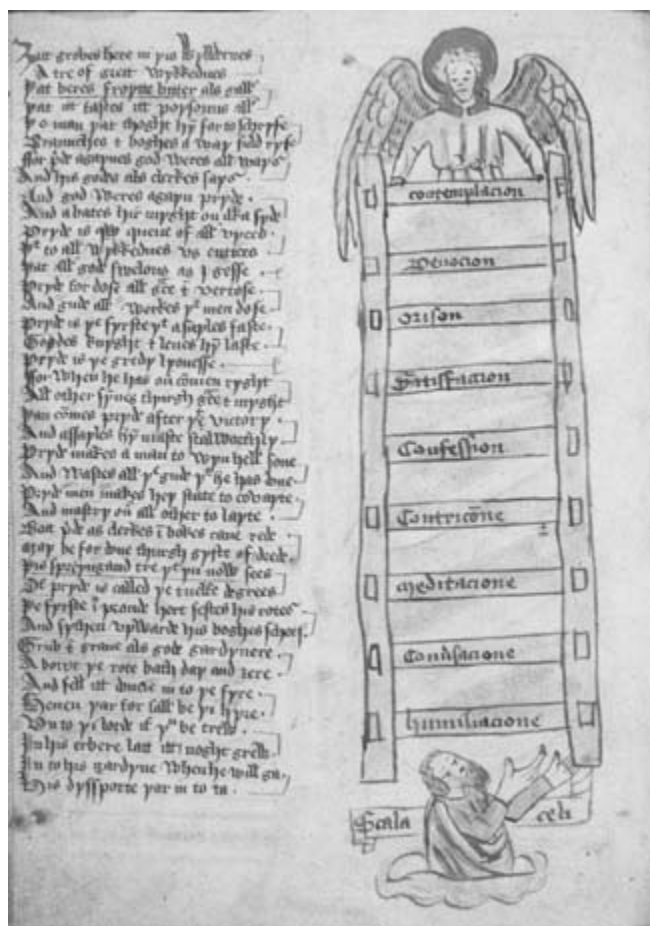 þat growes here in þis wyldernes
A tre of great wykkednes
þat beres froyte bitter als gall
þat itt tastes itt poysouns all
Braunches & boghes a way suld ryfe
ffor pride agaynes god weres all ways
And his godes als clerkes says
And god weres agayn pryde
And abates his myght on ilka syde
Pryde is now quene of all
þt to all wykkednes vs entices
þat all gode as I gesse
Pryde for dose all grace & vertose
And gude all workes þt men dose
Pryde is þe fyrste þt assayles faste
Goddes knyght & leues hym laste
Pryde is þe gredy lyonesse
ffor when he has ouercomen ryght
All other synnes thurgh grace & myght
þan comes pryde after þe victory
And assayles hym maste stalworthly
Pryde makes a man to wyn hell sone
And wastes all þt gude þt he has done
Pryde men makes hey state to couayte
And mastry on all other to layte
Bot pride as clerkes in bokes cane rede
may be for done thurgh gyfte of drede
þis spryngand tre þt þu now sees
Of pryde is called þe twelfe degrees
þe fyrste in prowde hert festes his rotes
And sythen vpwarde his boghes
Grub & graue als gode gardynere
Abowt þe rote bath day and
And fell itt downe in to þe fyre
Heuen þar for sall be þi hyre
Vn to þi lorde if þu be trew
In his erbere latt itt noght grew
In to his gardyne when he will ga
His dyssporte þar in to ta
contemplacion
Deuocion
Orison
Satisfaccion
Confession
Contricōne
meditacione
humiliacione
Scala celi